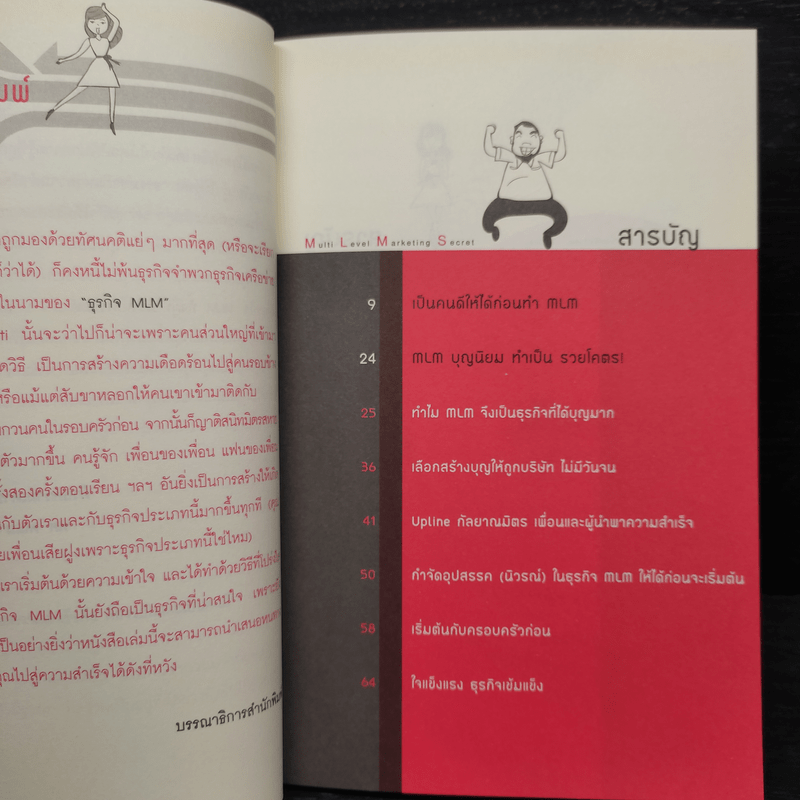 มพ์
ถูกมองด้วยทัศนคติแย่ๆ มากที่สุด (หรือจะเรียก
ก็ว่าได้) ก็คงหนีไม่พ้นธุรกิจจำพวกธุรกิจเครือข่าย
ในนามของ "ธุรกิจ MLM"
นั้นจะว่าไปก็น่าจะเพราะคนส่วนใหญ่ที่เข้ามา
ดวิธี เป็นการสร้างความเดือดร้อนไปสู่คนรอบข้าง
หรือแม้แต่สับขาหลอกให้คนเขาเข้ามาติดกับ
กวนคนในรอบครัวก่อน จากนั้นก็ญาติสนิทมิตรสหาย
ตัวมากขึ้น คนรู้จัก เพื่อนของเพื่อน แฟนของเพื่อน
งสองครั้งตอนเรียน ฯลฯ อันยิ่งเป็นการสร้างให้
กับตัวเราและกับธุรกิจประเภทนี้มากขึ้นทุกที
ยเพื่อนเสียฝูงเพราะธุรกิจประเภทนี้ใช่ไหม)
เราเริ่มต้นด้วยความเข้าใจ และได้ทำด้วยวิธีที่
กิจ MLM นั้นยังถือเป็นธุรกิจที่น่าสนใจ
เป็นอย่างยิ่งว่าหนังสือเล่มนี้จะสามารถนำเสนอ
คุณไปสู่ความสำเร็จได้ดังที่หวัง
บรรณาธิการสำนักพิมพ์
Multi Level Marketing Secret
สารบัญ
9 เป็นคนดีให้ได้ก่อนทำ MLM
24 MLM บุญนิยม ทำเป็น รวยโคตร!
25 ทำไม MLM จึงเป็นธุรกิจที่ได้บุญมาก
36 เลือกสร้างบุญให้ถูกบริษัท ไม่มีวันจน
41 Upline กัลยาณมิตร เพื่อนและผู้นำพาความสำเร็จ
50 กำจัดอุปสรรค (นิวรณ์) ในธุรกิจ MLM ให้ได้ก่อนจะเริ่มต้น
58 เริ่มต้นกับครอบครัวก่อน
64 ใจแข็งแรง ธุรกิจเข้มแข็ง